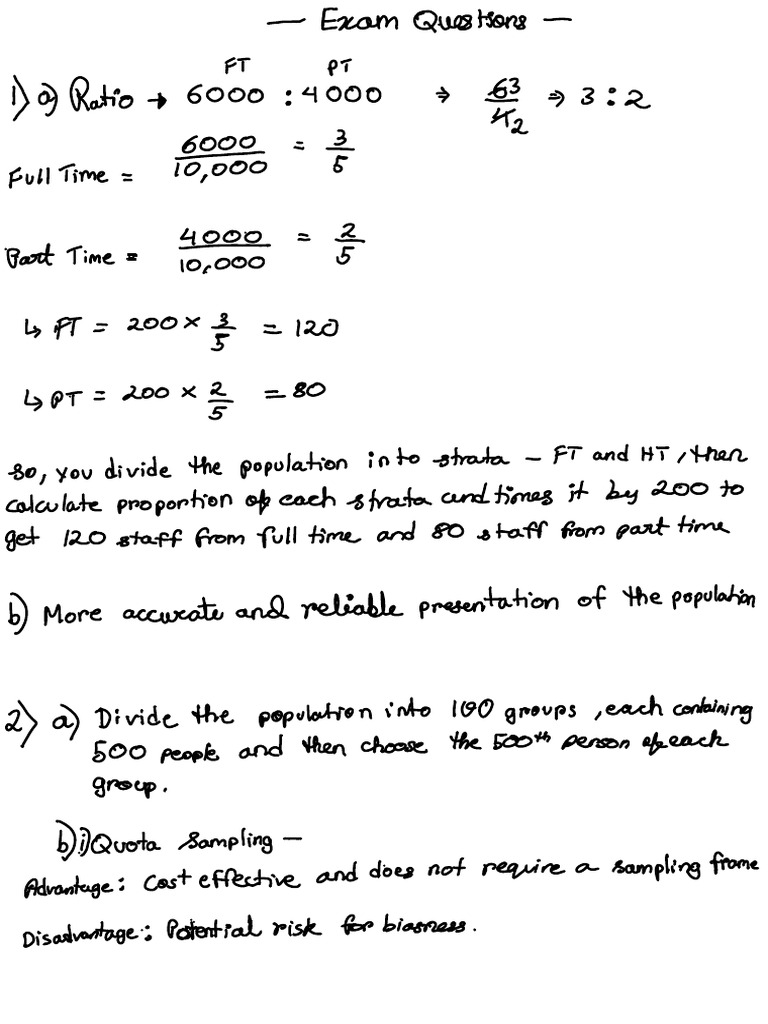 — Exam Questions —
FT PT
1) a) Ratio → 6000 : 4000 → 6̶3/4̶2 ⇒ 3 : 2
Full Time = 6000/10,000 = 3/5
Part Time = 4000/10,000 = 2/5
↳ FT = 200 × 3/5 = 120
↳ PT = 200 × 2/5 = 80
so, you divide the population into strata – FT and HT, then
calculate proportion of each strata and times it by 200 to
get 120 staff from full time and 80 staff from part time
b) More accurate and reliable presentation of the population
2) a) Divide the population into 100 groups, each containing
500 people and then choose the 500th person of each
group.
b) i) Quota Sampling –
Advantage: Cost effective and does not require a sampling frame
Disadvantage: Potential risk for biasness.